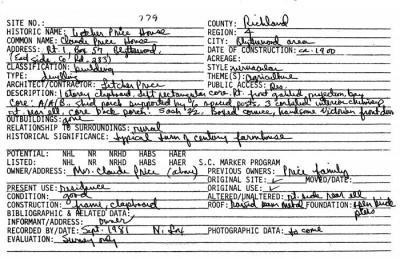 779
SITE NO.: COUNTY: Richland
HISTORIC NAME: Price House REGION: 4
COMMON NAME: Claude Price House CITY: Blythewood area
ADDRESS: Rt. 1 Box 57, Blythewood DATE OF CONSTRUCTION: ca. 1900
(East side Co. Rd. 283) ACREAGE:
CLASSIFICATION: building STYLE: vernacular
TYPE: dwelling THEME(S): agriculture
ARCHITECT/CONTRACTOR: Price PUBLIC ACCESS:
DESCRIPTION: 1 story clapboard, rectangular core. front gabled, projection bay
core: A/A/B. shed porch supported by posts. 3 interior chimneys,
rear ell, porch. Sash 2/2. Boxed cornice, handsome Victorian front door
OUTBUILDINGS: gone
RELATIONSHIP TO SURROUNDINGS: rural
HISTORICAL SIGNIFICANCE: typical turn of century farmhouse
POTENTIAL: NHL NR NRHD HABS HAER
LISTED: NHL NR NRHD HABS HAER S.C. MARKER PROGRAM
OWNER/ADDRESS: Mrs. Claude Price (above) PREVIOUS OWNERS: Price family
ORIGINAL SITE: ✓ MOVED/DATE:
PRESENT USE: residence ORIGINAL USE: ✓
CONDITION: good ALTERED/UNALTERED: rear ell
CONSTRUCTION: frame, clapboard ROOF: raised seam metal FOUNDATION: open brick piers
BIBLIOGRAPHIC & RELATED DATA:
INFORMANT/ADDRESS: owner
RECORDED BY/DATE: Sept. 1981 N. Fox PHOTOGRAPHIC DATA: to come
EVALUATION: Survey only